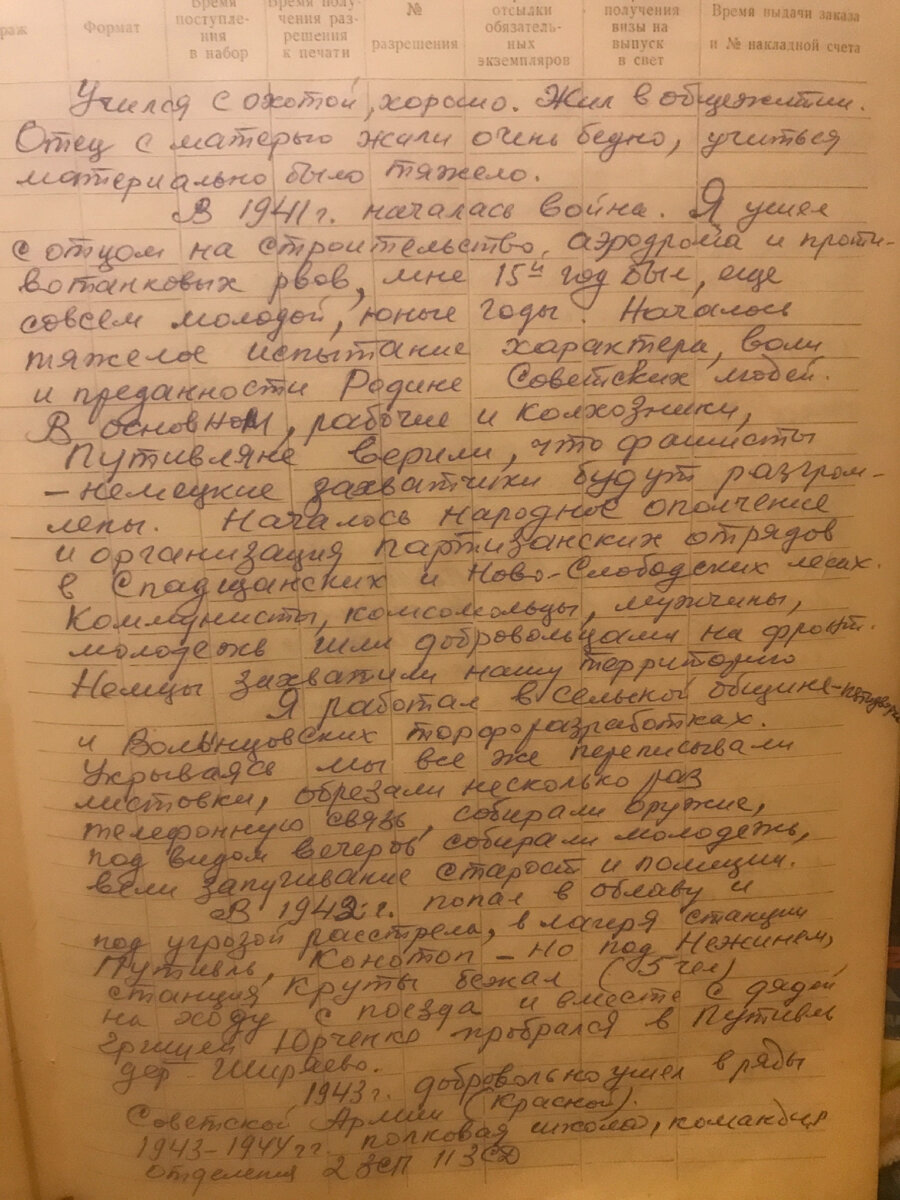 раж
Формат
Время поступле-
ния
в набор
Время полу-
чения раз-
решения
к печати
№
разрешения
отсылки
обязатель-
ных
экземпляров
получения
визы на
выпуск
в свет
Время выдачи заказа
и № накладной счета
Учился с охотой, хорошо. Жил в общежитии.
Отец с матерью жили очень бедно, учиться
материально было тяжело.
В 1941 г. началась война. Я ушел
с отцом на строительство аэродрома и проти-
вотанковых рвов, мне 15й год был, еще
совсем молодой, юные годы. Началось
тяжелое испытание характера, воли
и преданности Родине Советских людей.
В основном, рабочие и колхозники,
Путивляне верили, что фашисты
- немецкие захватчики будут разгром-
лены. Началось народное ополчение
и организация партизанских отрядов
в Спадщанских и Ново-Слободских лесах.
Коммунисты, комсомольцы, мужчины,
молодежь шли добровольцами на фронт.
Немцы захватили нашу территорию
Я работал в сельской общине-
и Волынцовских торфоразработках.
Укрываясь мы все же переписывали
листовки, обрезали несколько раз
телефонную связь, собирали оружие,
под видом вечеров собирали молодежь,
вели запугивание старост и полиции.
В 1942 г. попал в облаву и
под угрозой расстрела, в лагеря станции
Путивль, Конотоп - Но под Нежинем,
станция Круты бежал (5 чел)
на ходу с поезда и вместе с дядей
Гришей Юрченко пробрался в Путивль
дер. Ширяево.
1943 г. добровольно ушел в ряды
Советской Армии (Красной).
1943-1944 гг. полковая школа, командир
отделения 2 ЗСП 11 ЗСД